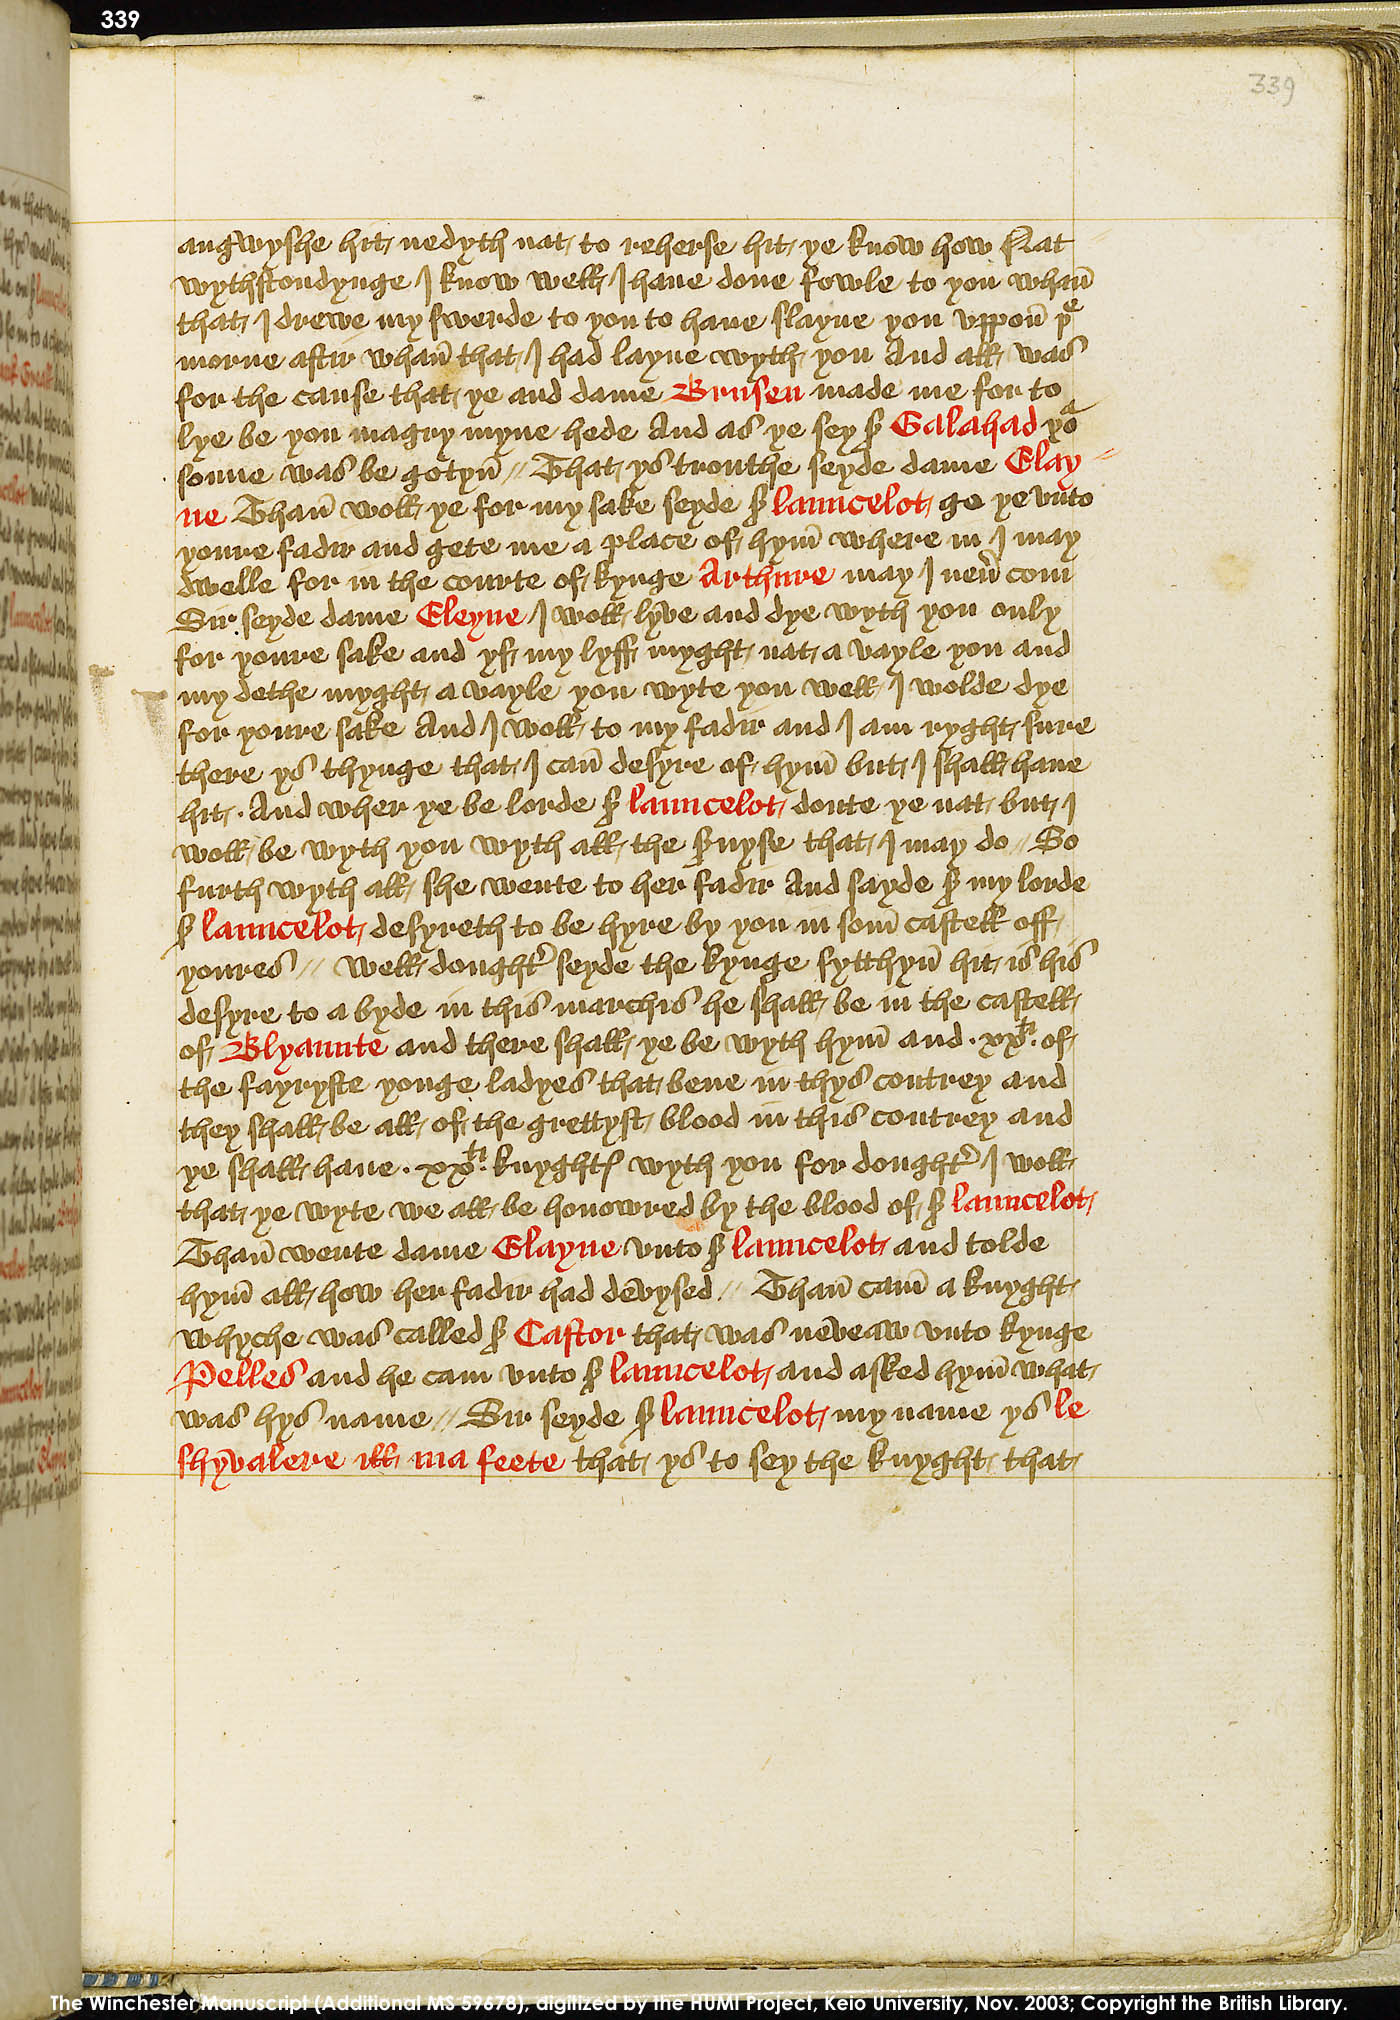 339
339
angwyshe hit nedyth nat to reherse hit ye know how Nat
wythstondynge I know well I haue done fowle to you whan̄
that I drewe my swerde to you to haue slayne you vppon̄ þͤ
morne aftir whan̄ that I had layne wyth you And all was
for the cause that ye and dame Brusen made me for to
lye be you magry myne hede And as ye sey sʳ Galahad yoʳ
sonne was be gotyn̄ // That ys trouthe seyde dame Elay
ne Than̄ woll ye for my sake seyde sʳ launcelot go ye vnto
youre fadir and gete me a place of hym̄ where in I may
dwelle for in the courte of kynge Arthure may I neu̓ com
Sir seyde dame Eleyne I woll lyve and dye wyth you only
for youre sake and yf my lyff myght nat a vayle you and
my dethe myght a vayle you wyte you well I wolde dye
for youre sake And I woll to my fadir and I am ryght sure
there ys thynge that I can̄ desyre of hym̄ but I shall haue
hit · And wher ye be lorde sʳ launcelot doute ye nat but I
woll be wyth you wyth all the sʳuyse that I may do // So
furth wyth all she wente to her fadir And sayde sʳ my lorde
sʳ launcelot desyreth to be hyre by you in som̄ castell off
youres // Well dought̓ seyde the kynge sytthyn̄ hit is his
desyre to a byde in this marchis he shall be in the castell
of Blyaunte and there shall ye be wyth hym̄ and · xxᵗⁱ · of
the fayryste yonge ladyes that bene in thys contrey and
they shall be all of the grettyst blood in this contrey and
ye shall haue · xxᵗⁱ · knyghtꝭ wyth you for dought̓ I woll
that ye wyte we all be honowred by the blood of sʳ launcelot
Than̄ wente dame Elayne vnto sʳ launcelot and tolde
hym̄ all how her fadir had devysed // Than̄ cam̄ a knyght
whyche was called sʳ Castor that was neveaw vnto kynge
Pelles and he cam vnto sʳ launcelot and asked hym̄ what
was hys name // Sir seyde sʳ launcelot my name ys le
shyvalere ill ma feete that ys to sey the knyght that
The Winchester Manuscript (Additional MS 59678), digitized by the HUMI Project, Keio University, Nov. 2003; Copyright the British Library.